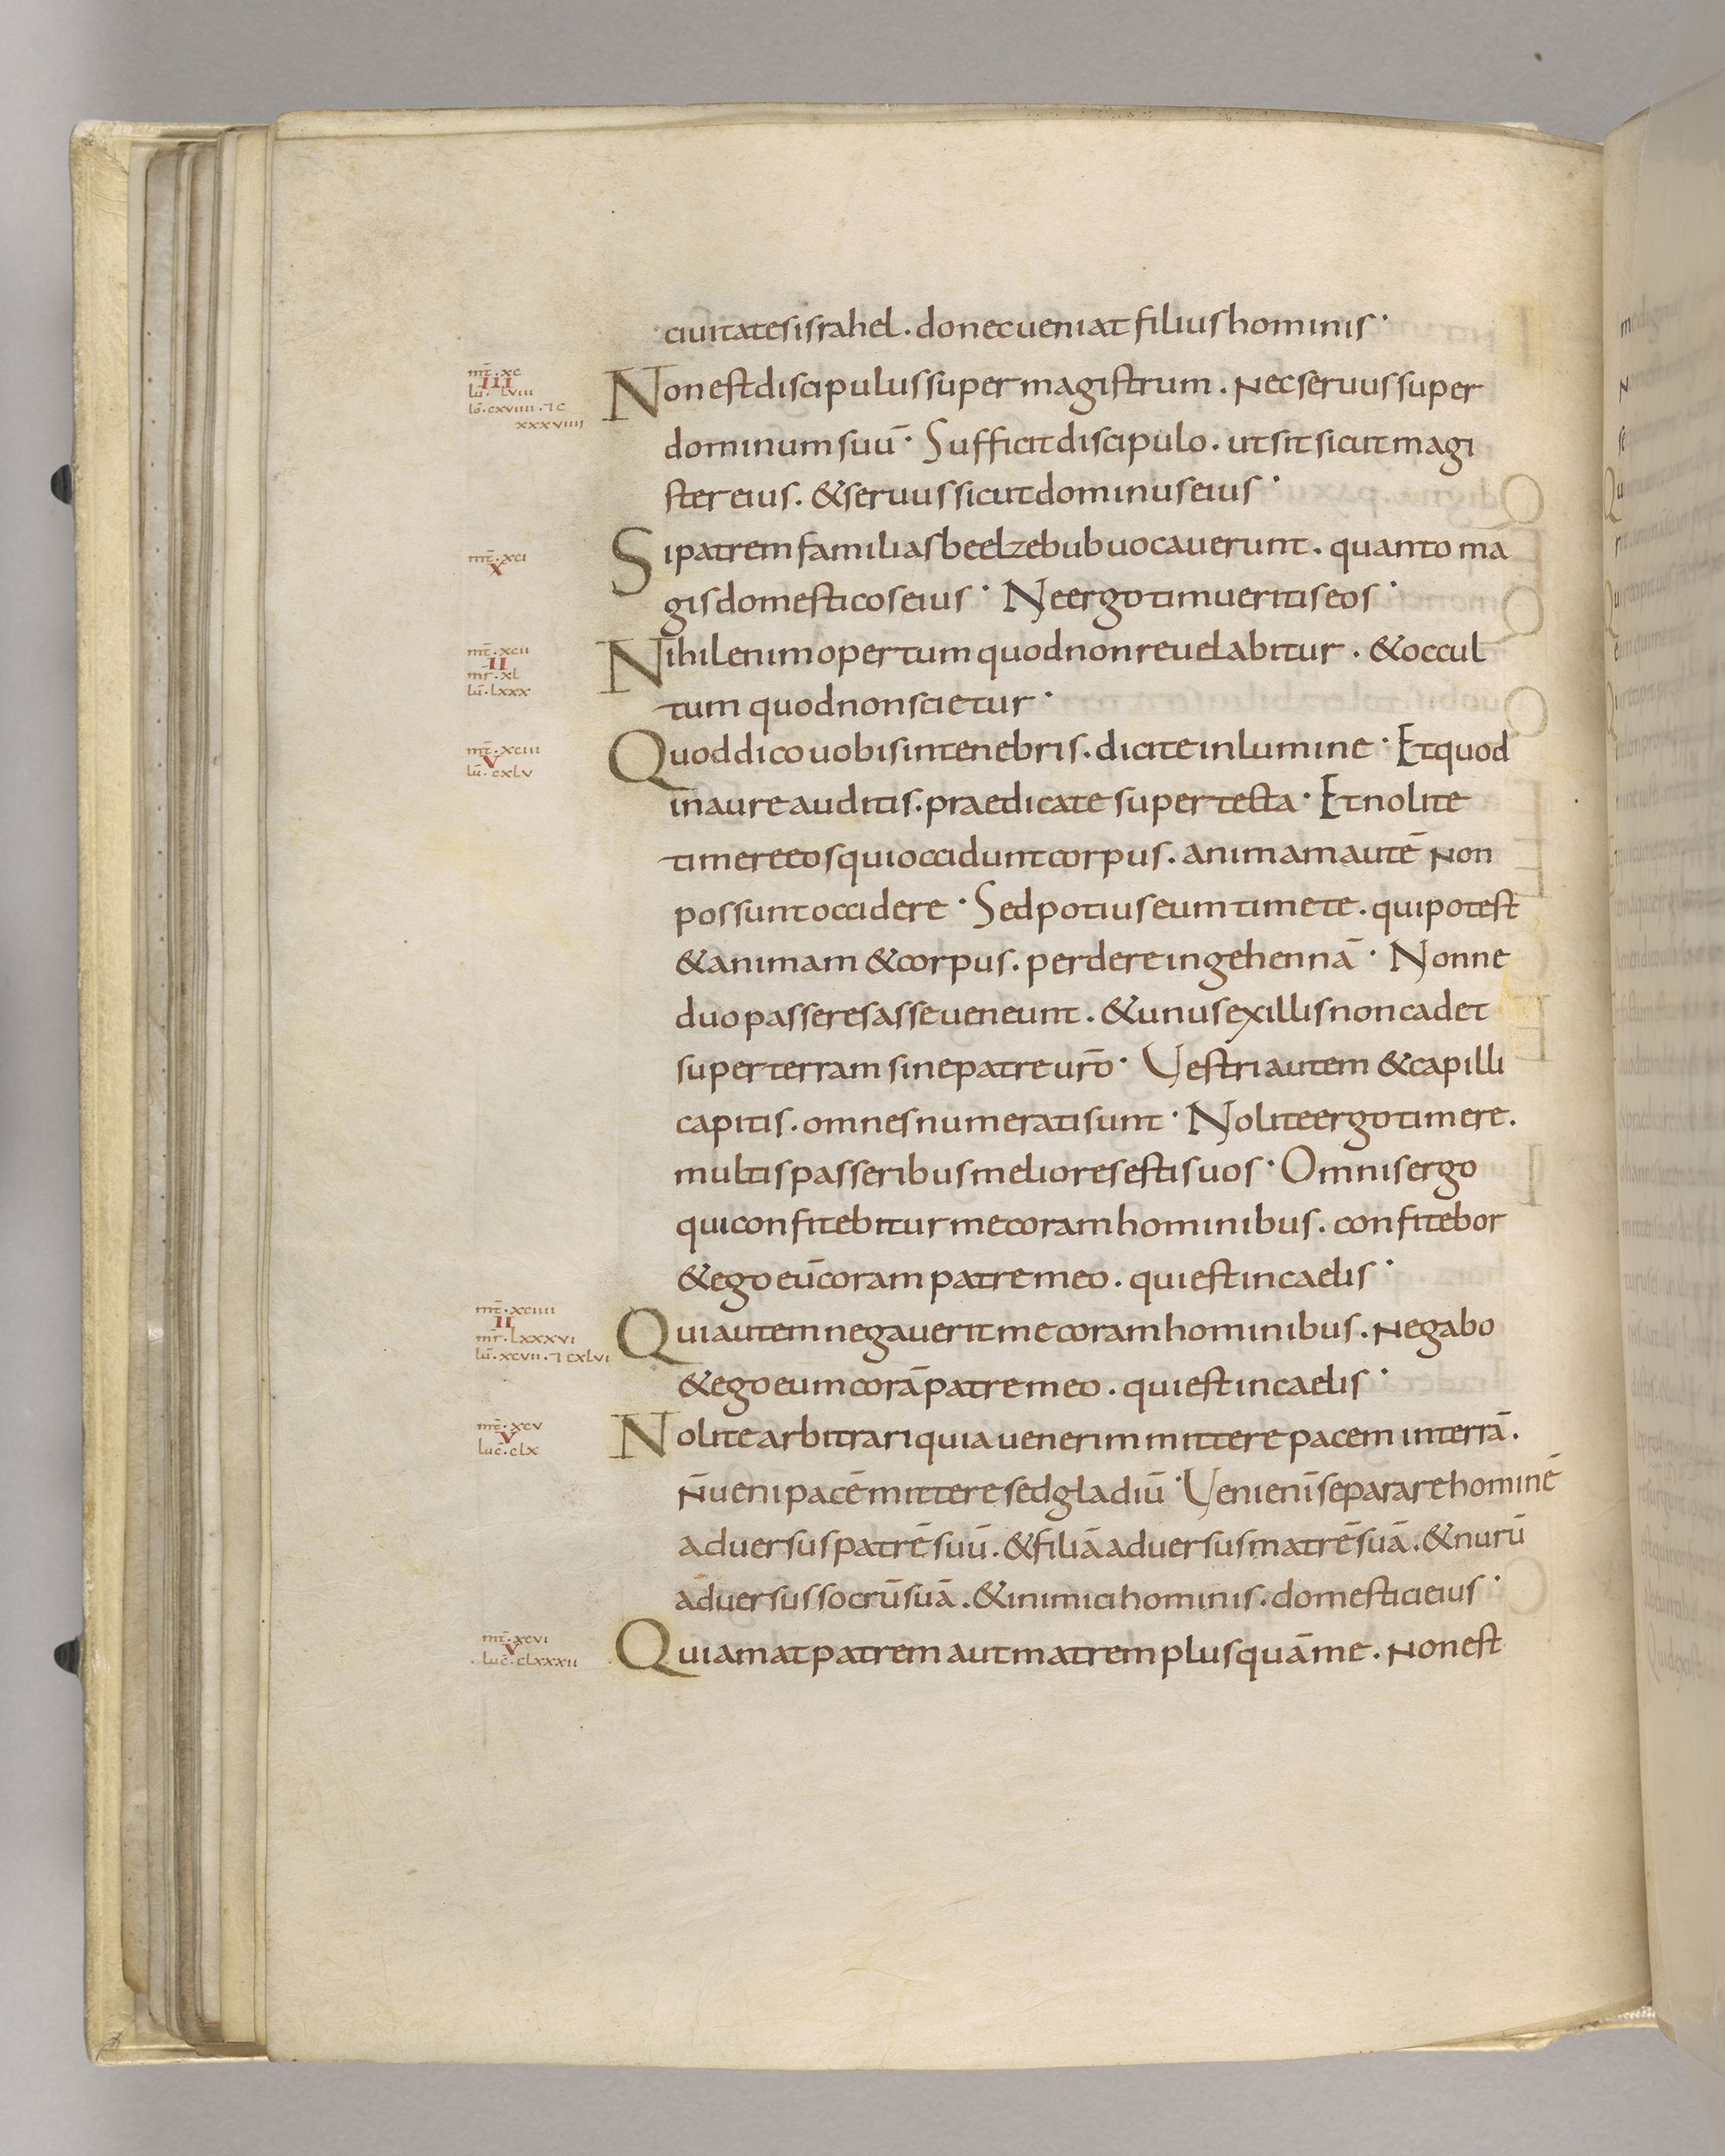 ciuitates israhel . donec ueniat filius hominis ·
mt̄ . xc
III
lū . lviii
iō . cxviiii . ⁊ c
xxxviiii
Non est discipulus super magistrum . Nec seruus super
dominum suū · Sufficit discipulo . ut sit sicut magi
ster eius . & seruus sicut dominus eius ·
mt̄ . xci
X
Si patrem familias beelzebub uocauerunt . quanto ma
gis domesticos eius · Ne ergo timueritis eos ·
mt̄ . xcii
II
mr̄ . xl
lū . lxxx
Nihil enim opertum quod non reuelabitur . & occul
tum quod non scietur ·
mt̄ . xciii
V
lū . cxlv
Quod dico uobis in tenebris . dicite in lumine · Et quod
in aure auditis . praedicate super tecta · Et nolite
timere eos qui occidunt corpus . animam autē Non
possunt occidere · Sed potius eum timete . qui potest
& animam & corpus . perdere in gehennā · Nonne
duo passeres asse ueneunt . & unus ex illis non cadet
super terram sine patre ur̄o · Uestri autem & capilli
capitis . omnes numerati sunt · Nolite ergo timere .
multis passeribus meliores estis uos · Omnis ergo
qui confitebitur me coram hominibus . confitebor
& ego eū coram patre meo . qui est in caelis ·
mt̄ . xciiii
II
mr̄ . lxxxvi
lū . xcvii . ⁊ cxlvi
Qui autem negauerit me coram hominibus . Negabo
& ego eum corā patre meo . qui est in caelis ·
mt̄ . xcv
V
luc̄ . clx
Nolite arbitrari quia uenerim mittere pacem in terrā .
N̄ ueni pacē mittere sed gladiū · Ueni enī separare hominē
aduersus patrē suū . & filiā aduersus matrē suā . & nurū
aduersus socrū suā . & inimici hominis . domestici eius ·
mt̄ . xcvi
V
. luc̄ . clxxxii
Qui amat patrem aut matrem plus quā me . Non est